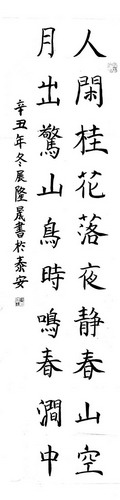 人閑桂花落夜静春山空
月出驚山鳥時鳴春澗中
辛丑年冬展隆晟書於泰安